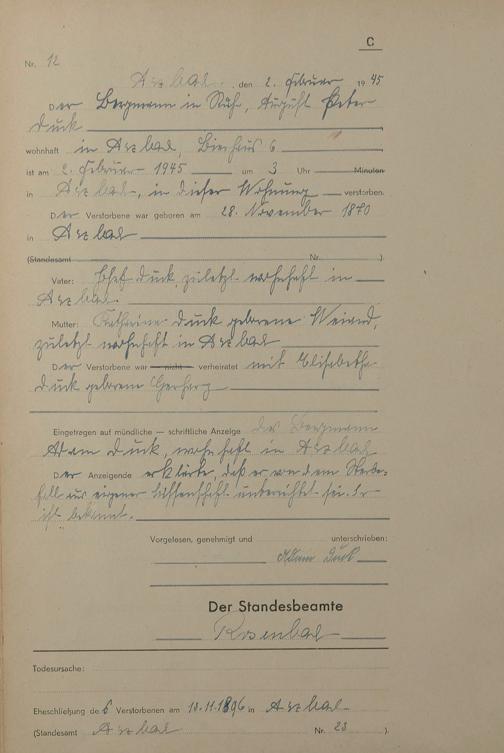 C
Nr. 12
Arzbach, den 2. Februar 1945
Der Bergmann in Ruh, August Peter
Duck
wohnhaft in Arzbach, Bierhaus 6
ist am 2. Februar 1945 um 3 Uhr Minuten
in Arzbach, in dieser Wohnung verstorben.
Der Verstorbene war geboren am 28. November 1870
in Arzbach
(Standesamt Nr. ).
Vater: Duck, zuletzt wohnhaft in
Arzbach.
Mutter: Katharina Duck geborene Weiand,
zuletzt wohnhaft in Arzbach
Der Verstorbene war nicht verheiratet mit Elisabetha
Duck geborene Gerharz
Eingetragen auf mündliche — schriftliche Anzeige des Bergmann
Adam Duck, wohnhaft in Arzbach
Der Anzeigende erklärte, daß er von dem Sterbe-
fall aus eigener Wissenschaft unterrichtet sei. Er
ist bekannt.
Vorgelesen, genehmigt und unterschrieben:
Adam Duck
Der Standesbeamte
Todesursache:
Eheschließung des Verstorbenen am 10.11.1896 in Arzbach
(Standesamt Arzbach Nr. 23 ).